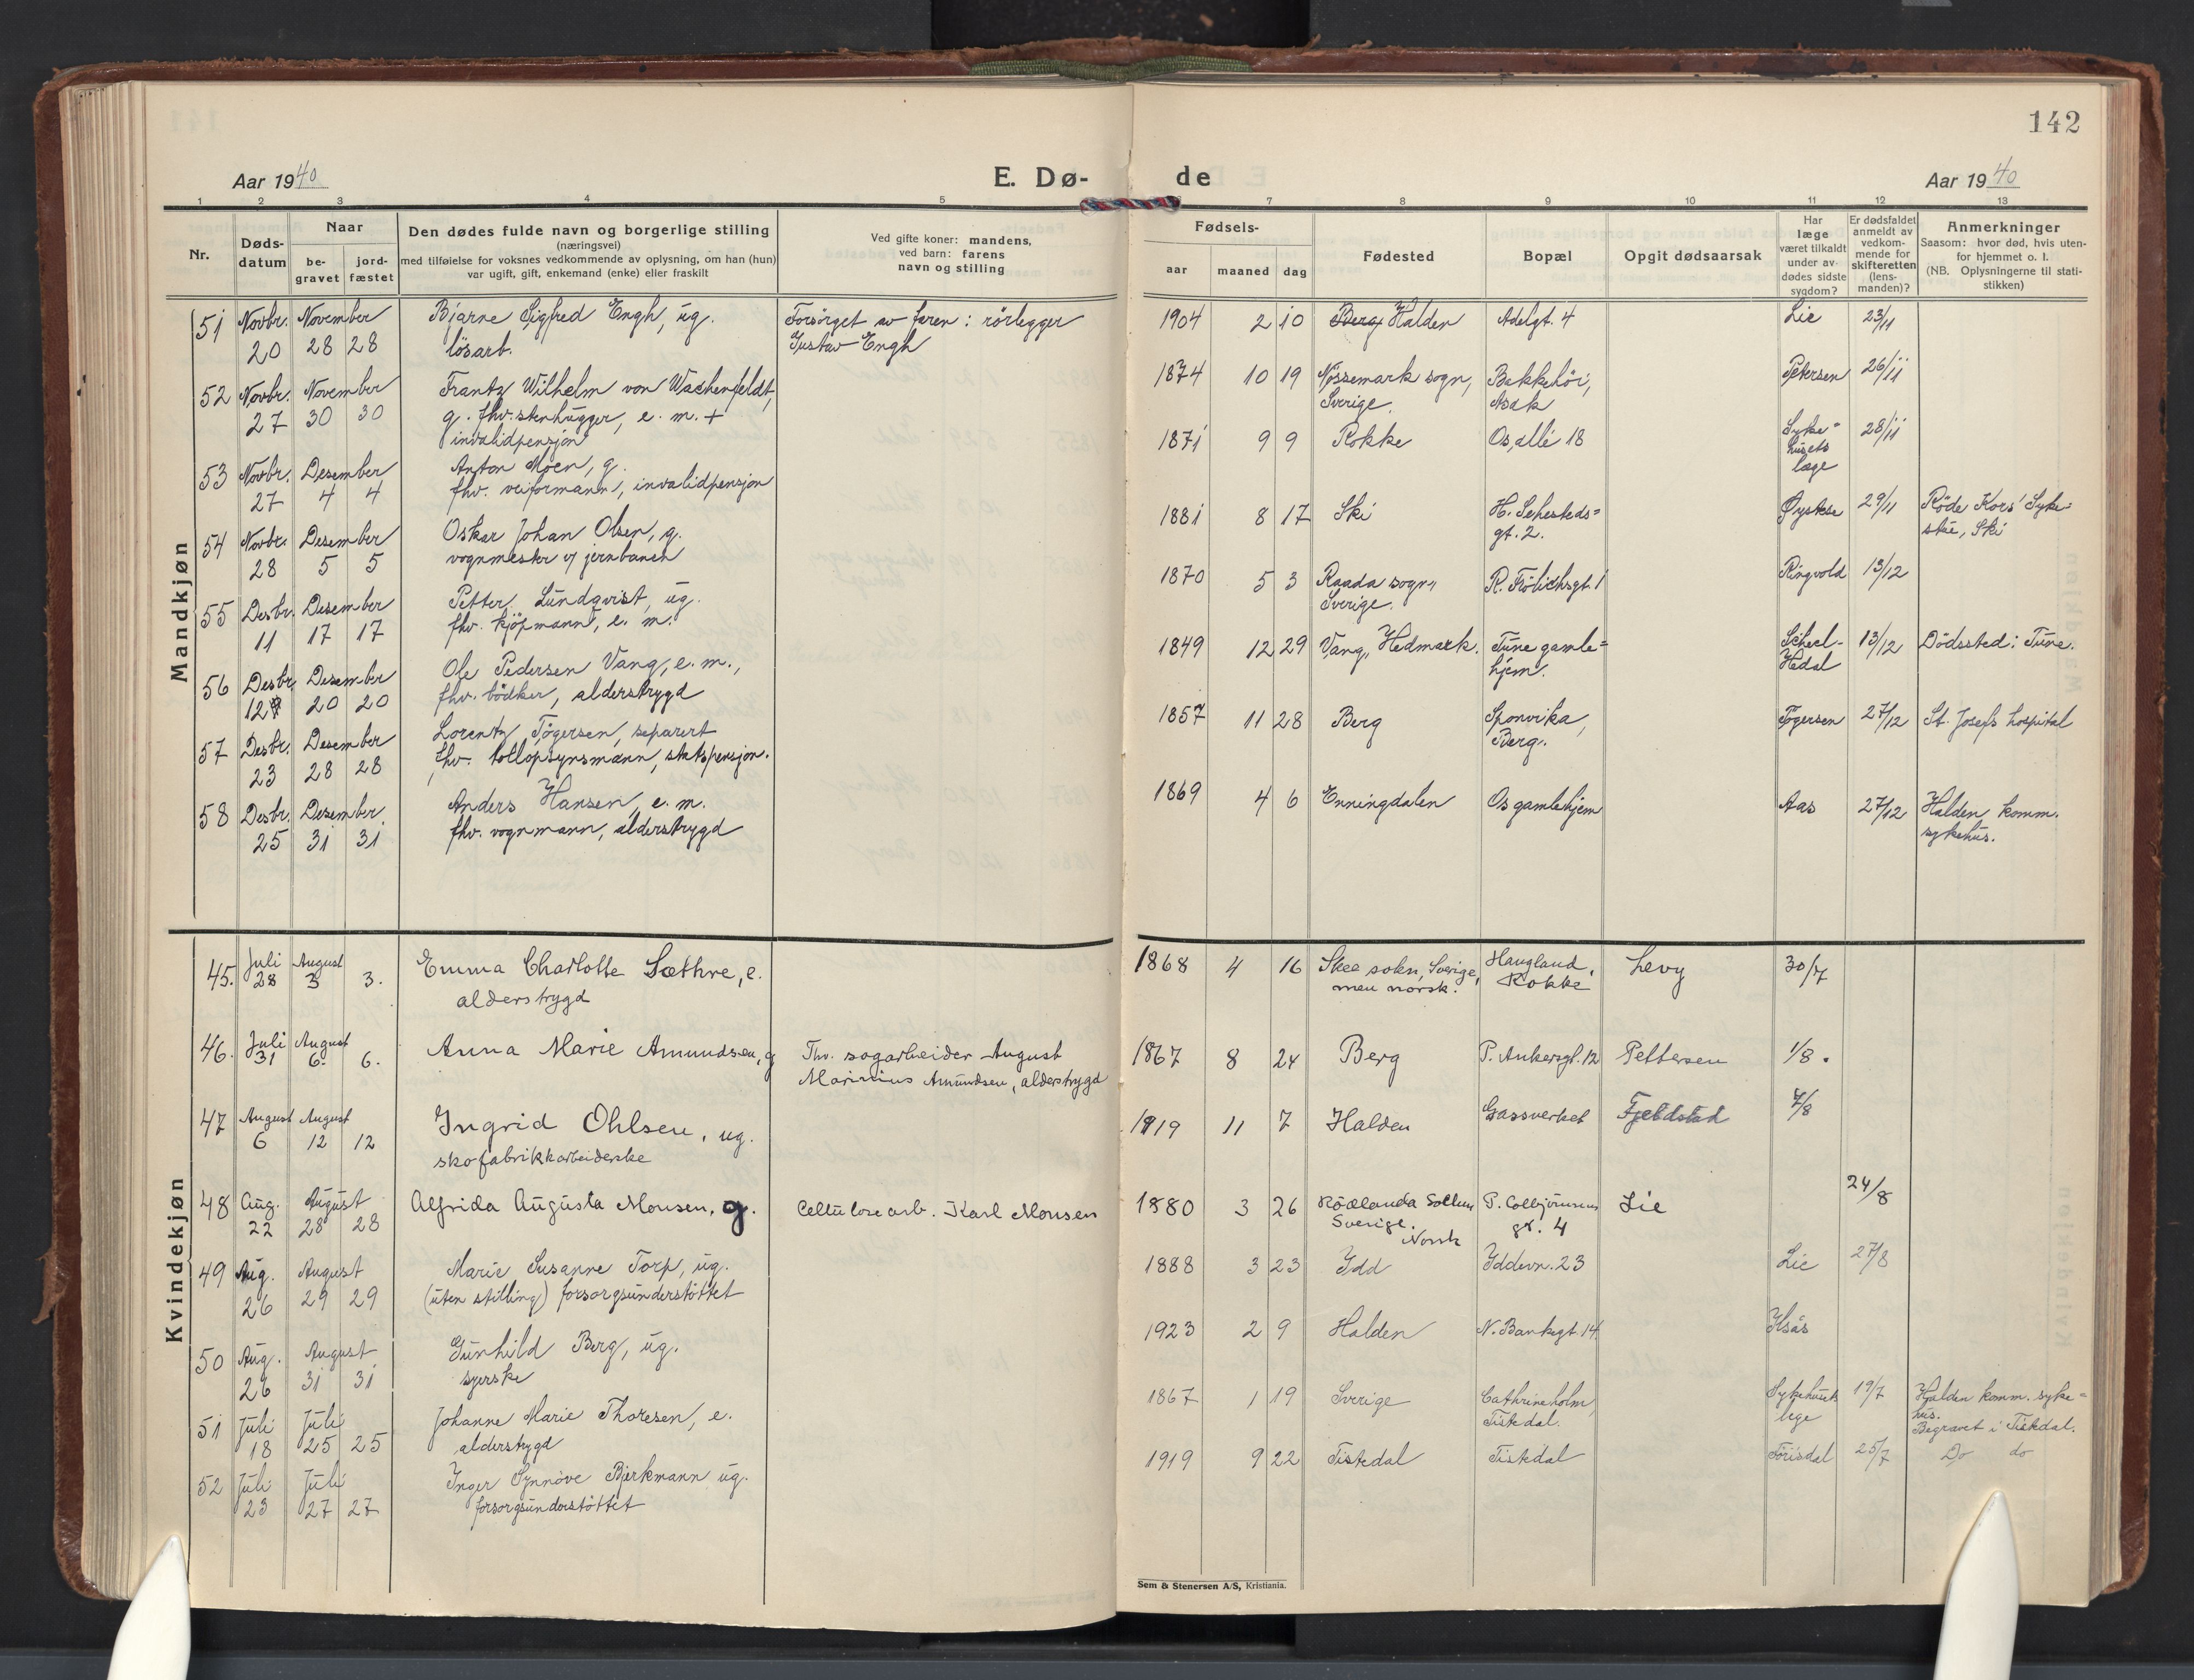 142
Aar 1940
E. Dø-
de
Aar 1940
1 2 3 4 5 7 8 9 10 11 12 13
Nr.
Døds-
datum
Naar
be-
gravet
jord-
fæstet
Den dødes fulde navn og borgerlige stilling
(næringsvei)
med tilføielse for voksnes vedkommende av oplysning, om han (hun)
var ugift, gift, enkemand (enke) eller fraskilt
Ved gifte koner: mandens,
ved barn: farens
navn og stilling
Fødsels-
aar maaned dag
Fødested
Bopæl
Opgit dødsaarsak
Har
læge
været tilkaldt
under av-
dødes sidste
sygdom?
Er dødsfaldet
anmeldt av
vedkom-
mende for
skifteretten
(lens-
manden)?
Anmerkninger
Saasom: hvor død, hvis uten-
for hjemmet o. l.
(NB. Oplysningerne til stati-
stikken)
Mandkjøn
51 Novbr. November Bjarne Sigfred Engh, ug. Forsørget av faren: rørlegger 1904 2 10 Berg Halden Adelgt. 4 Lie 23/11
20 28 28 løsarb. Gustav Engh
52 Novbr. November Frantz Wilhelm von Wachenfeldt, 1874 10 19 Nössemark sogn, Bakkehör, Petersen 26/11
27 30 30 g. fhv. stenhugger, e. m. + Sverige. Asak
invalidpensjon
53 Novbr. Desember Anton Moen, g. 1871 9 9 Rokke Os allé 18 Syke= 28/11
27 4 4 fhv. veiformann, invalidpensjon husets
læge
54 Novbr. Desember Oskar Johan Olsen, g. 1881 8 17 Ski H. Sehesteds= 29/11 Röde Kors' Syke=
28 5 5 vognmester v/ jernbanen gt. 2. Ski
55 Desbr. Desember Petter Lundqvist, ug. 1870 5 3 Raada sogn, R. Frölichsgt. 1 Ringvold 13/12
11 17 17 fhv. kjøpmann, e. m. Sverige.
56 Desbr. Desember Ole Pedersen Vang, e. m., 1849 12 29 Vang, Hedmark. Tune gamle= Scheel- 13/12 Dödssted: Tune.
12 20 20 fhv. bödker, alderstrygd hjem. Hedal
57 Desbr. Desember Lorentz Tögersen, separert 1857 11 28 Berg Sponvika, Tögersen 27/12 St. Josefs hospital
23 28 28 fhv. tollopsynsmann, statspensjon. Berg.
58 Desbr. Desember. Anders Hansen, e. m. 1869 4 6 Enningdalen Os gamlehjem Aas 27/12 Halden komm.
25 31 31 fhv. vognmann, alderstrygd sykehus.
Kvindekjøn
45. Juli August Emma Charlotte Sæthre, e. 1868 4 16 Skee sokn, Sverige, Haugland, Levy 30/7
28 3 3. alderstrygd men norsk. Rokke
46. Juli August Anna Marie Amundsen, g Fhv. sagarbeider August 1867 8 24 Berg P. Ankersgt. 12 Pettersen 1/8.
31 6. 6. Marinius Amundsen, alderstrygd
47 August August Ingrid Ohlsen, ug. 1919 11 7 Halden Gassverket Fjeldstad 7/8
6 12 12 skofabrikkarbeiderske
48 Aug. August Alfrida Augusta Monsen, g. Cellulosearb. Karl Monsen 1880 3 26 P. Colbjörnsens Lie 24/8
22 28 28 Sverige. Norsk gt. 4
49 Aug. August Marie Susanne Torp, ug. 1888 3 23 Idd Iddevn. 23 Lie 27/8
26 29 29 (uten stilling) forsorgsunderstöttet
50 Aug. August Gunhild Berg, ug. 1923 2 9 Halden N. Bankgt. 14 Ilsås
26 31 31 syerske
51 Juli Juli Johanne Marie Thoresen, e. 1867 1 19 Sverige Cathrineholm, Sykehusets 19/7 Halden komm. syke=
18 25 25 alderstrygd Tistedal. lege hus.
Begravet i Tistedal.
52 Juli Juli Inger Synnöve Bjerkmann ug. 1919 9 22 Tistedal Tistedal 25/7 Do do
23 27 27 forsorgsunderstöttet
Sem & Stenersen A/S, Kristiania.